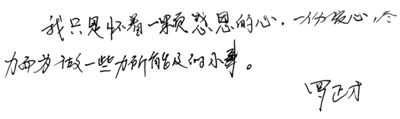 我只是怀着一颗感恩的心，一份爱心，尽
力而为做一些力所能及的小事。
罗正才